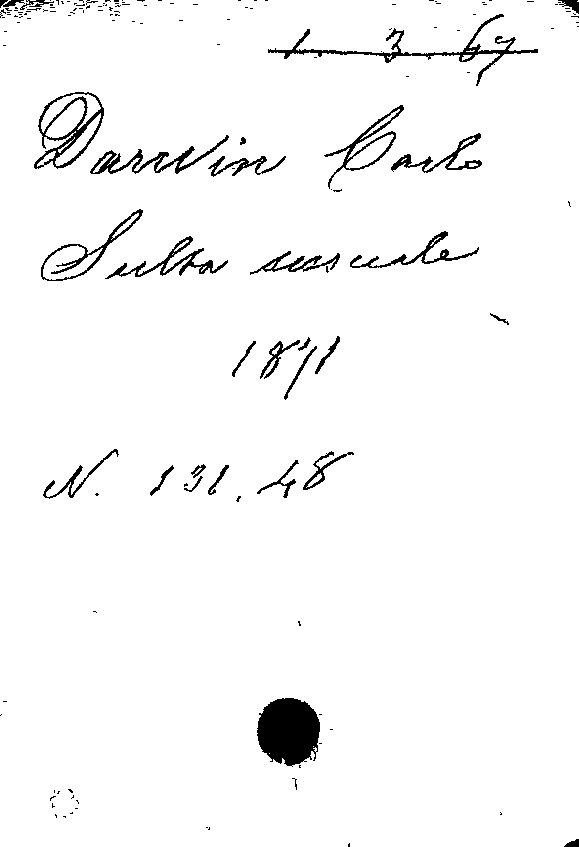 1. 3. 67
Darwin Carlo
Sulla sessuale
1871
N. 131.48